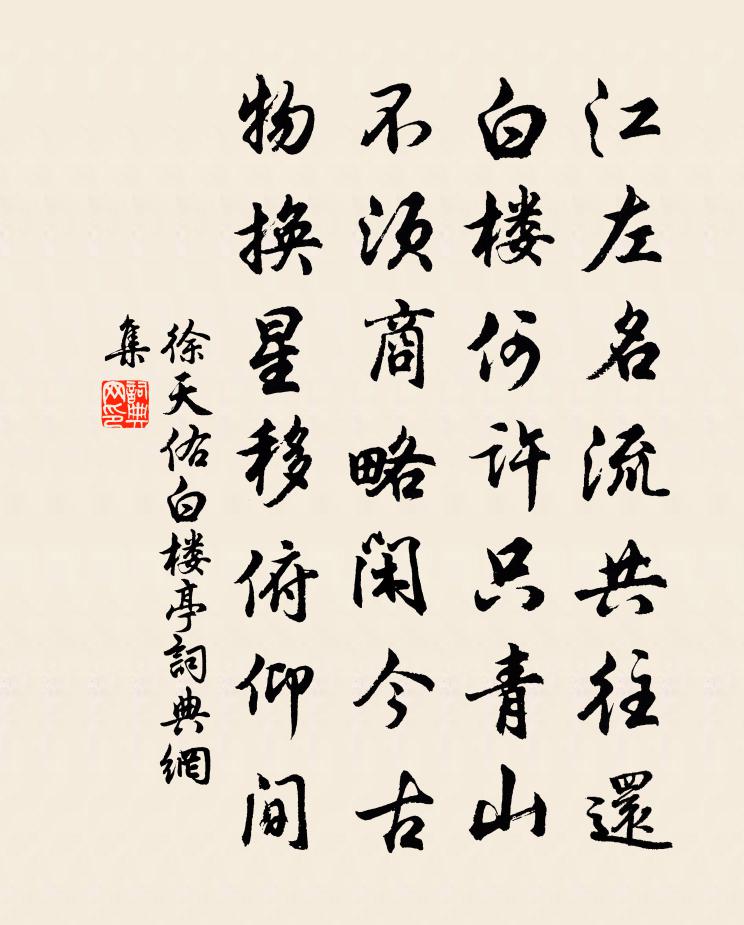 江左名流共往還
白楼何許只青山
不须商略闲今古
物换星移俯仰間
徐天佑白楼亭詞典網
集
詞典网印